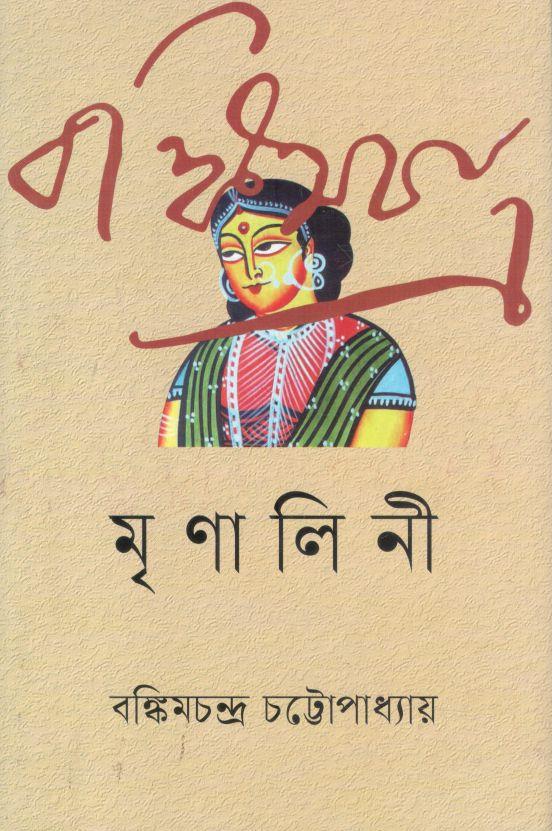 বঙ্কিমচন্দ্র
মৃণালিনী
বঙ্কিমচন্দ্র চট্টোপাধ্যায়